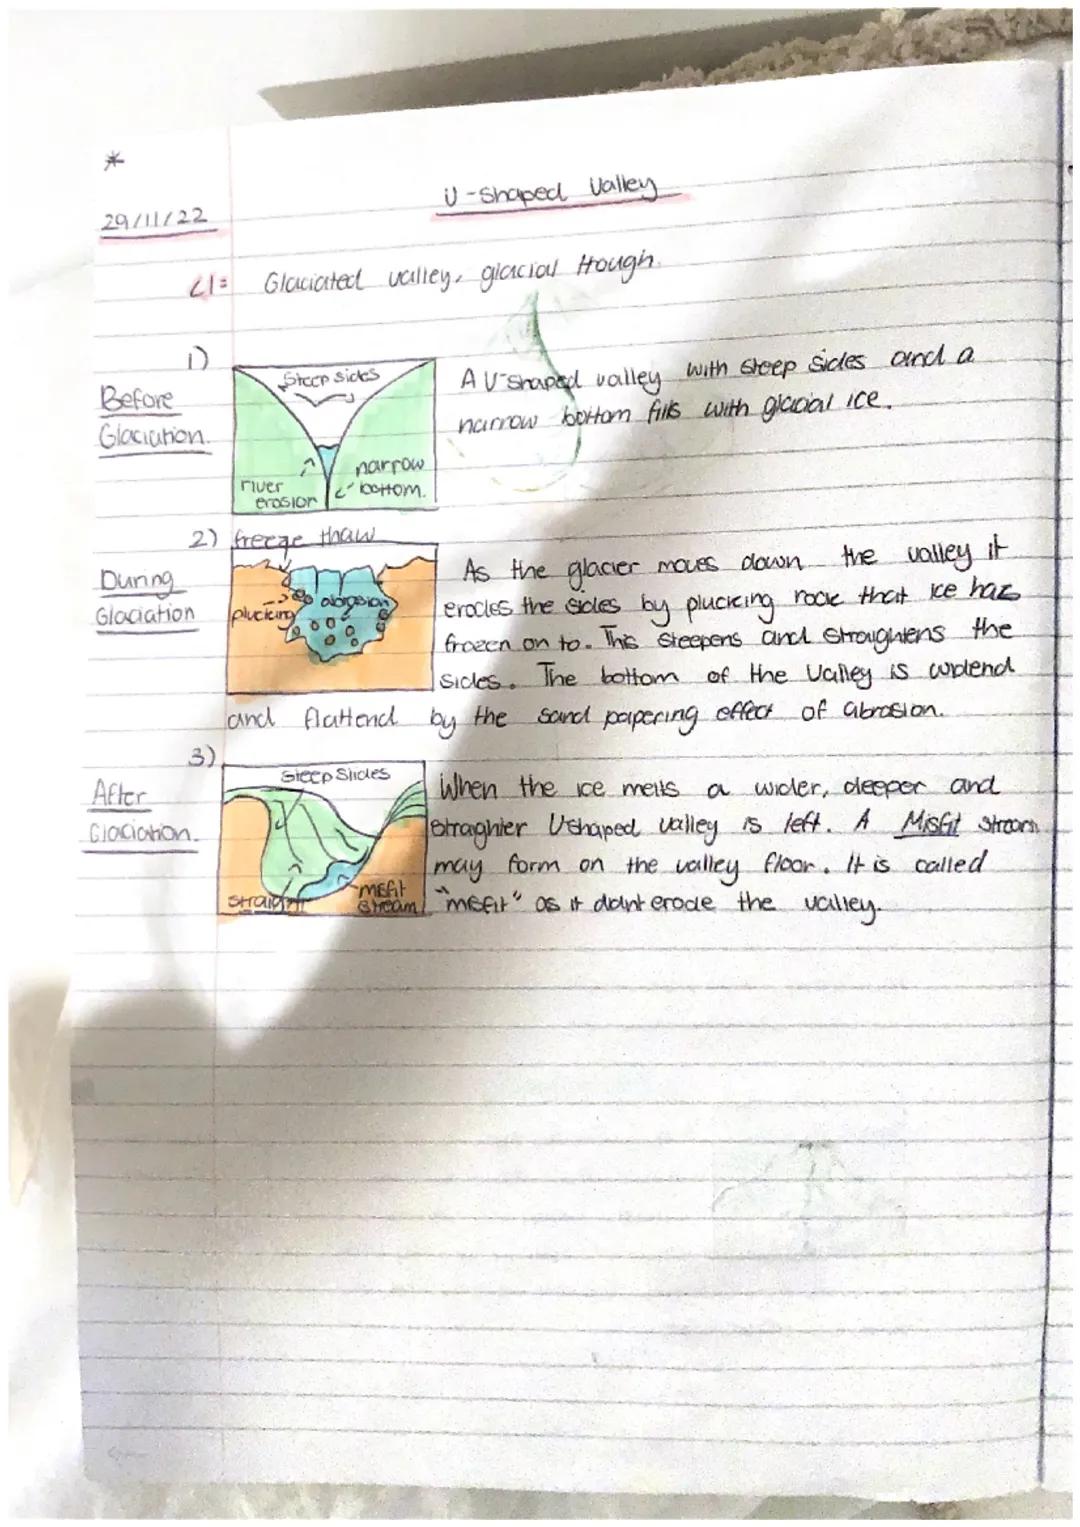 *
U-shaped Valley
29/11/22
LI= Glaciated valley, glacial trough.
1)
Before
Glaciation.
Steep sides
river
erosion
narrow
bottom.
A V-shaped valley with steep sides and a
narrow bottom fills with glacial ice.
2) freeze thaw
During
Glaciation
plucking
abrasion
As the glacier moves down the valley it
erodes the sides by plucking rock that ice has
frozen on to. This steepens and straightens the
sides. The bottom of the valley is widend
and flattend by the sand papering effect of abrasion.
3)
After
Glaciation.
Steep Slides
straight
misfit
stream
When the ice melts a wider, deeper and
straighter Ushaped valley is left. A Misfit stream
may form on the valley floor. It is called
"misfit" as it didnt erode the valley.